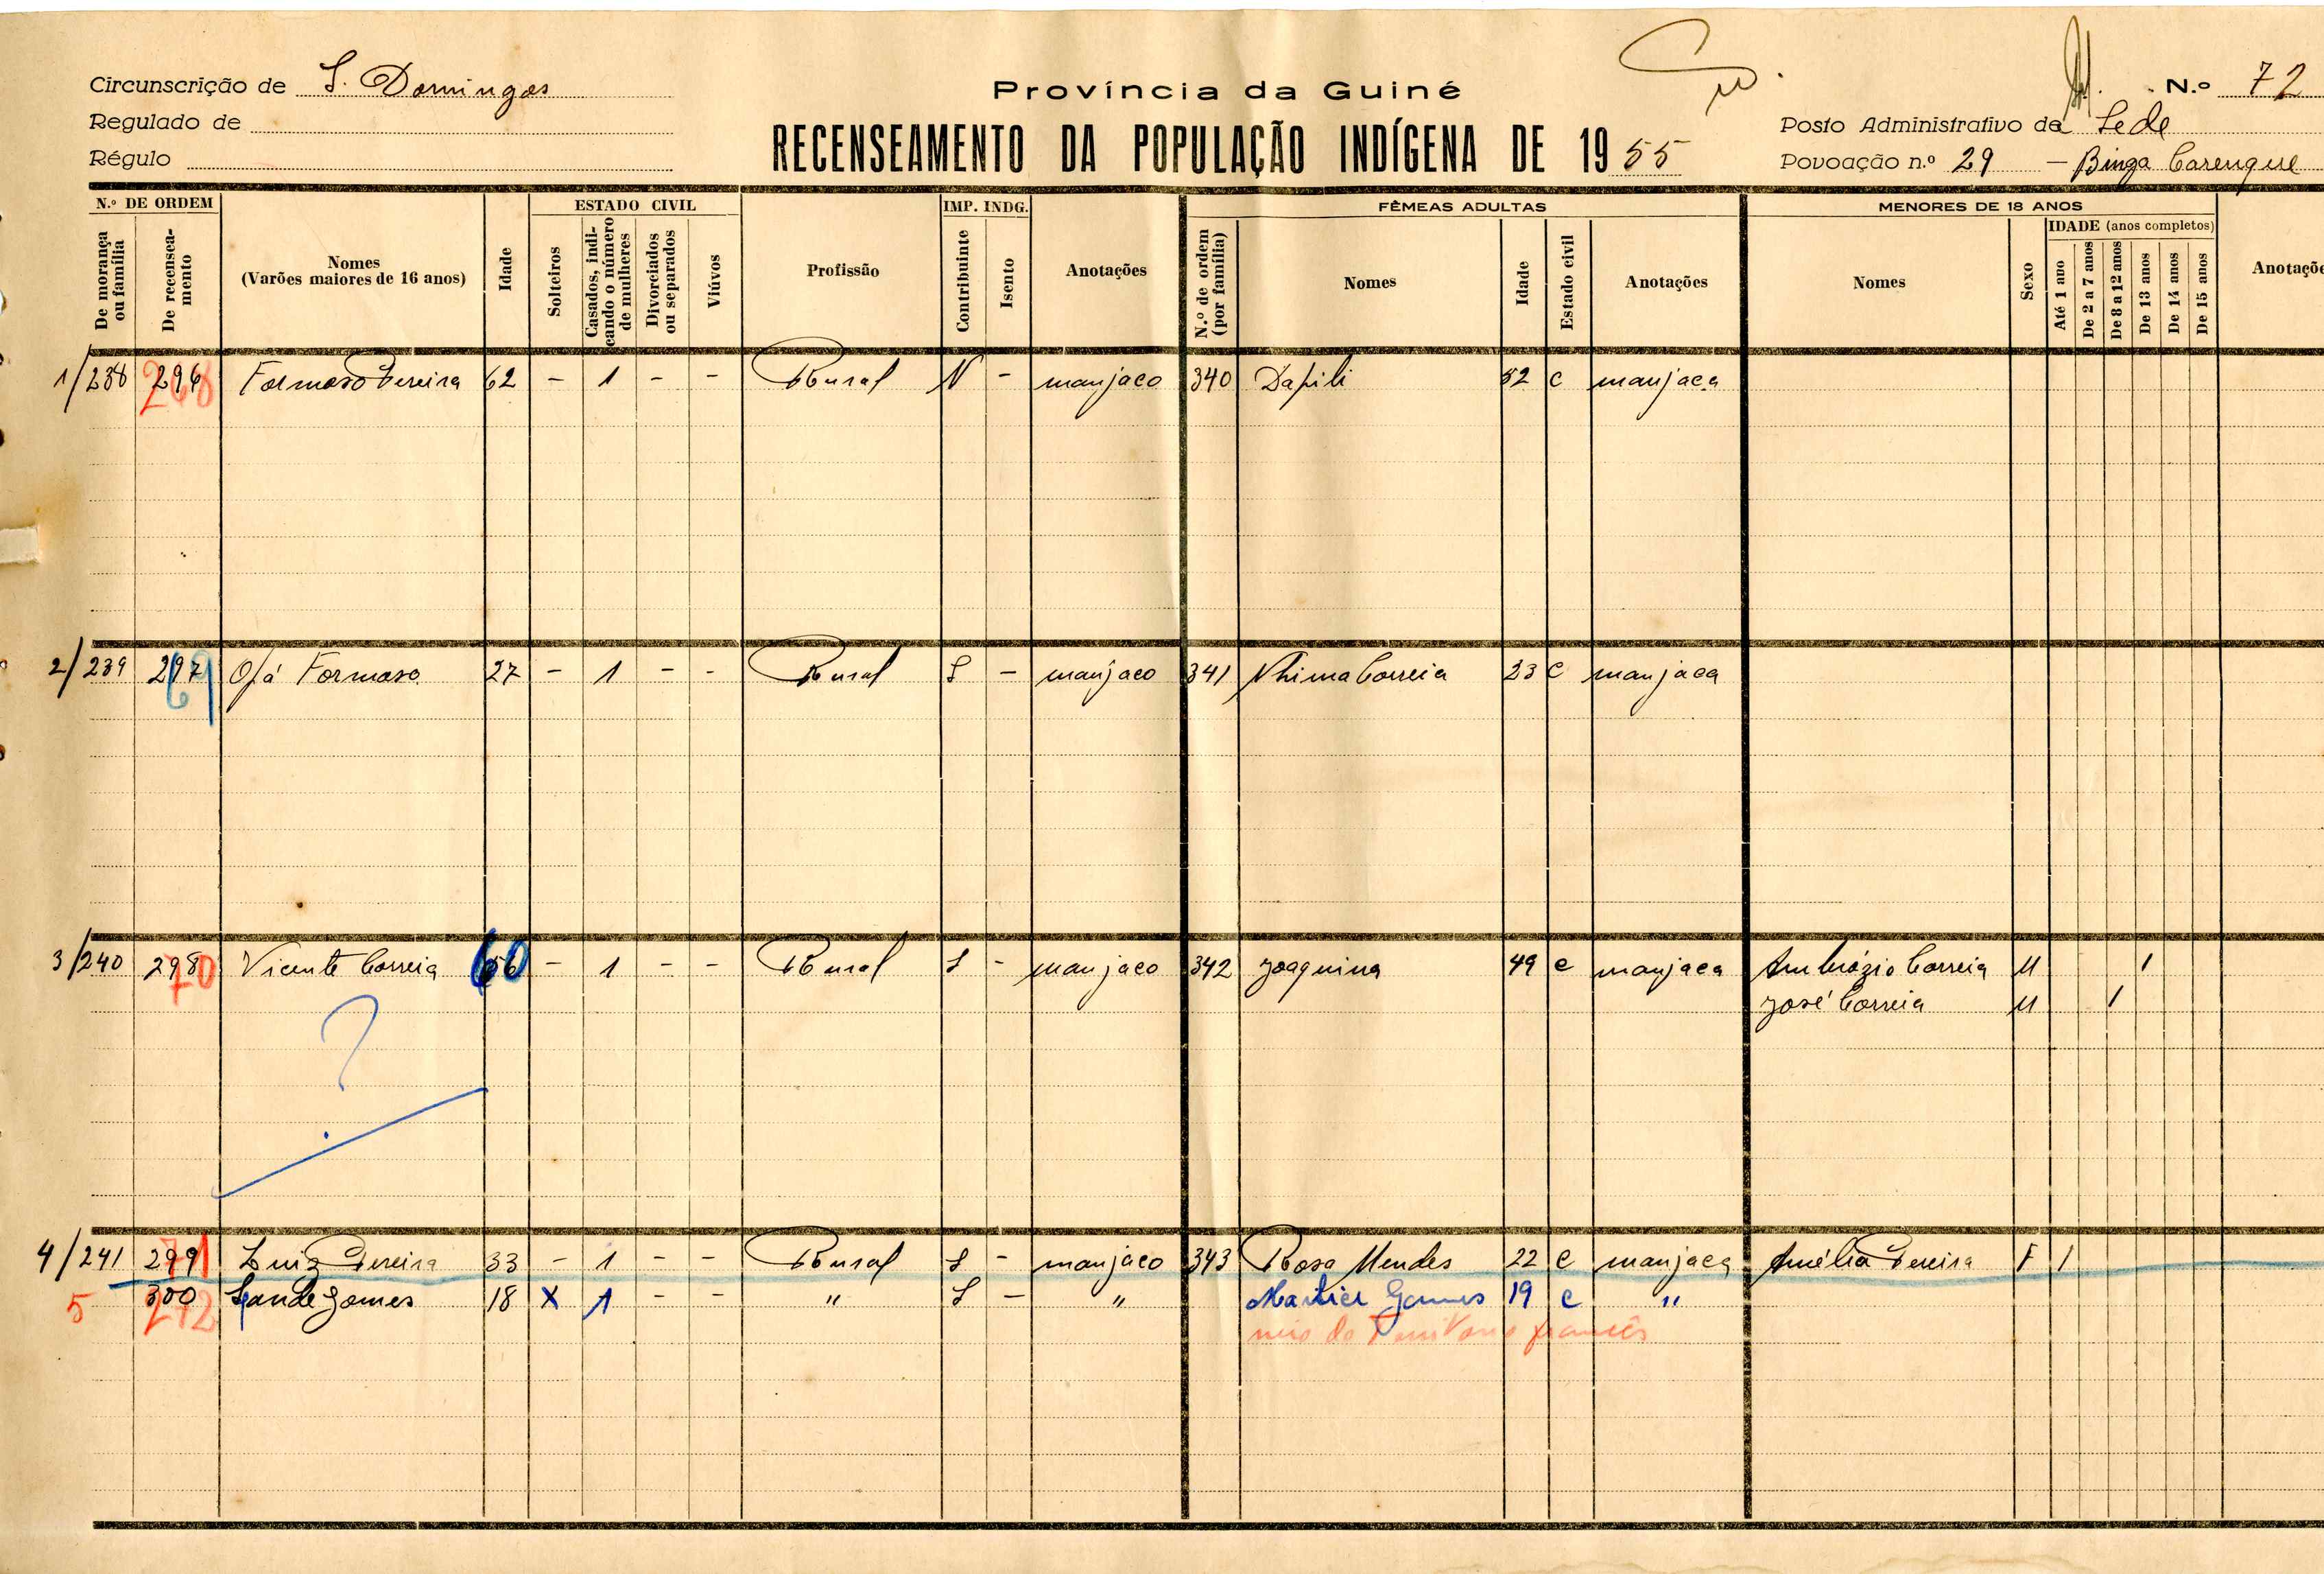 Circunscrição de S. Domingos
Regulado de
Régulo
Província da Guiné
RECENSEAMENTO DA POPULAÇÃO INDÍGENA DE 1955
N.º 72
Posto Administrativo da Sede
Povoação n.º 29 — Binga Carenque
N.º DE ORDEM
De morança ou família
De recenseamento
Nomes
(Varões maiores de 16 anos)
Idade
ESTADO CIVIL
Solteiros
Casados, indicando o número de mulheres
Divorciados ou separados
Viúvos
Profissão
IMP. INDG.
Contribuinte
Isento
Anotações
FÊMEAS ADULTAS
N.º de ordem (por família)
Nomes
Idade
Estado civil
Anotações
MENORES DE 18 ANOS
Nomes
Sexo
IDADE (anos completos)
Até 1 ano
De 2 a 7 anos
De 8 a 12 anos
De 13 anos
De 14 anos
De 15 anos
Anotaçõe
1/238 296 268 Formoso Pereira 62 - 1 - - Rural N - manjaco 340 Dapili 52 C manjaca
2/239 297 69 Ofá Formoso 27 - 1 - - Rural S - manjaco 341 Nhima Correia 23 C manjaca
3/240 298 70 Vicente Correia 60 - 1 - - Rural S - manjaco 342 Joaquina 49 C manjaca Ambrózio Correia M 1
José Correia M 1
?
4/241 299 71 Luiz Pereira 33 - 1 - - Rural S - manjaco 343 Rosa Mendes 22 C manjaca Amélia Pereira F 1
5 300 272 Lande Gomes 18 X 1 - - " S - " Gomes 19 C "
francês